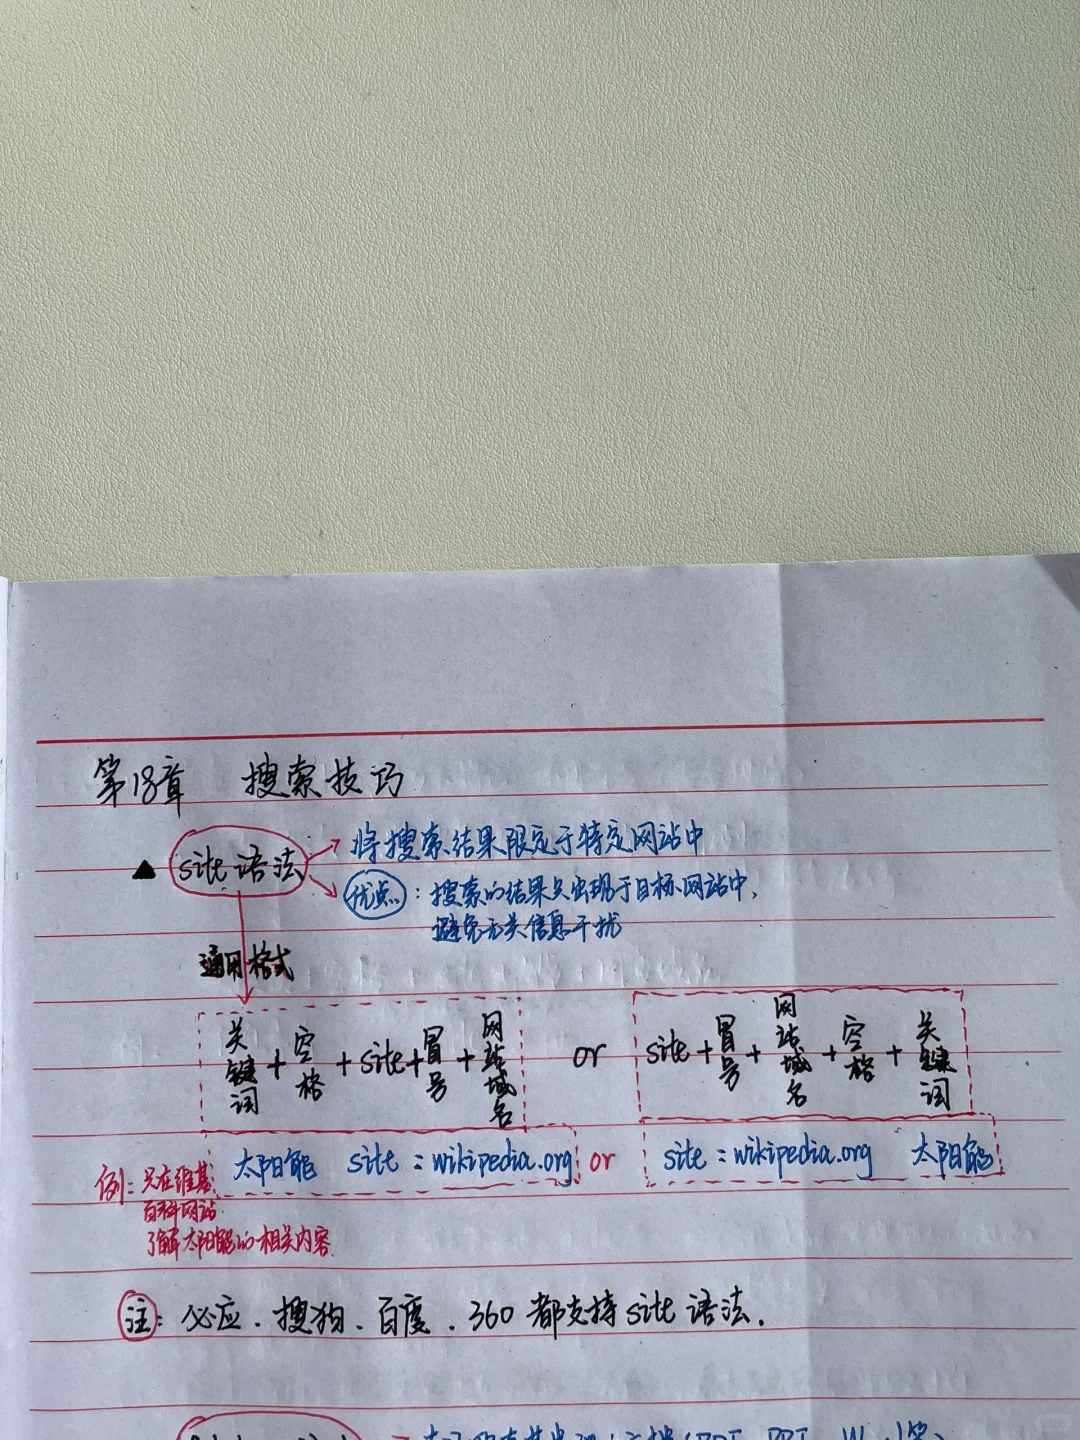 第18章 搜索技巧
▲ site 语法 将搜索结果限定于特定网站中
优点：搜索的结果只出现于目标网站中，
避免无关信息干扰
通用格式
关键词 + 空格 + site + 冒号 + 网站域名 or site + 冒号 + 网站域名 + 空格 + 关键词
太阳能 site：wikipedia.org or site：wikipedia.org 太阳能
例：只在维基
百科网站
了解太阳能的相关内容.
注：必应、搜狗、百度、360都支持site语法.